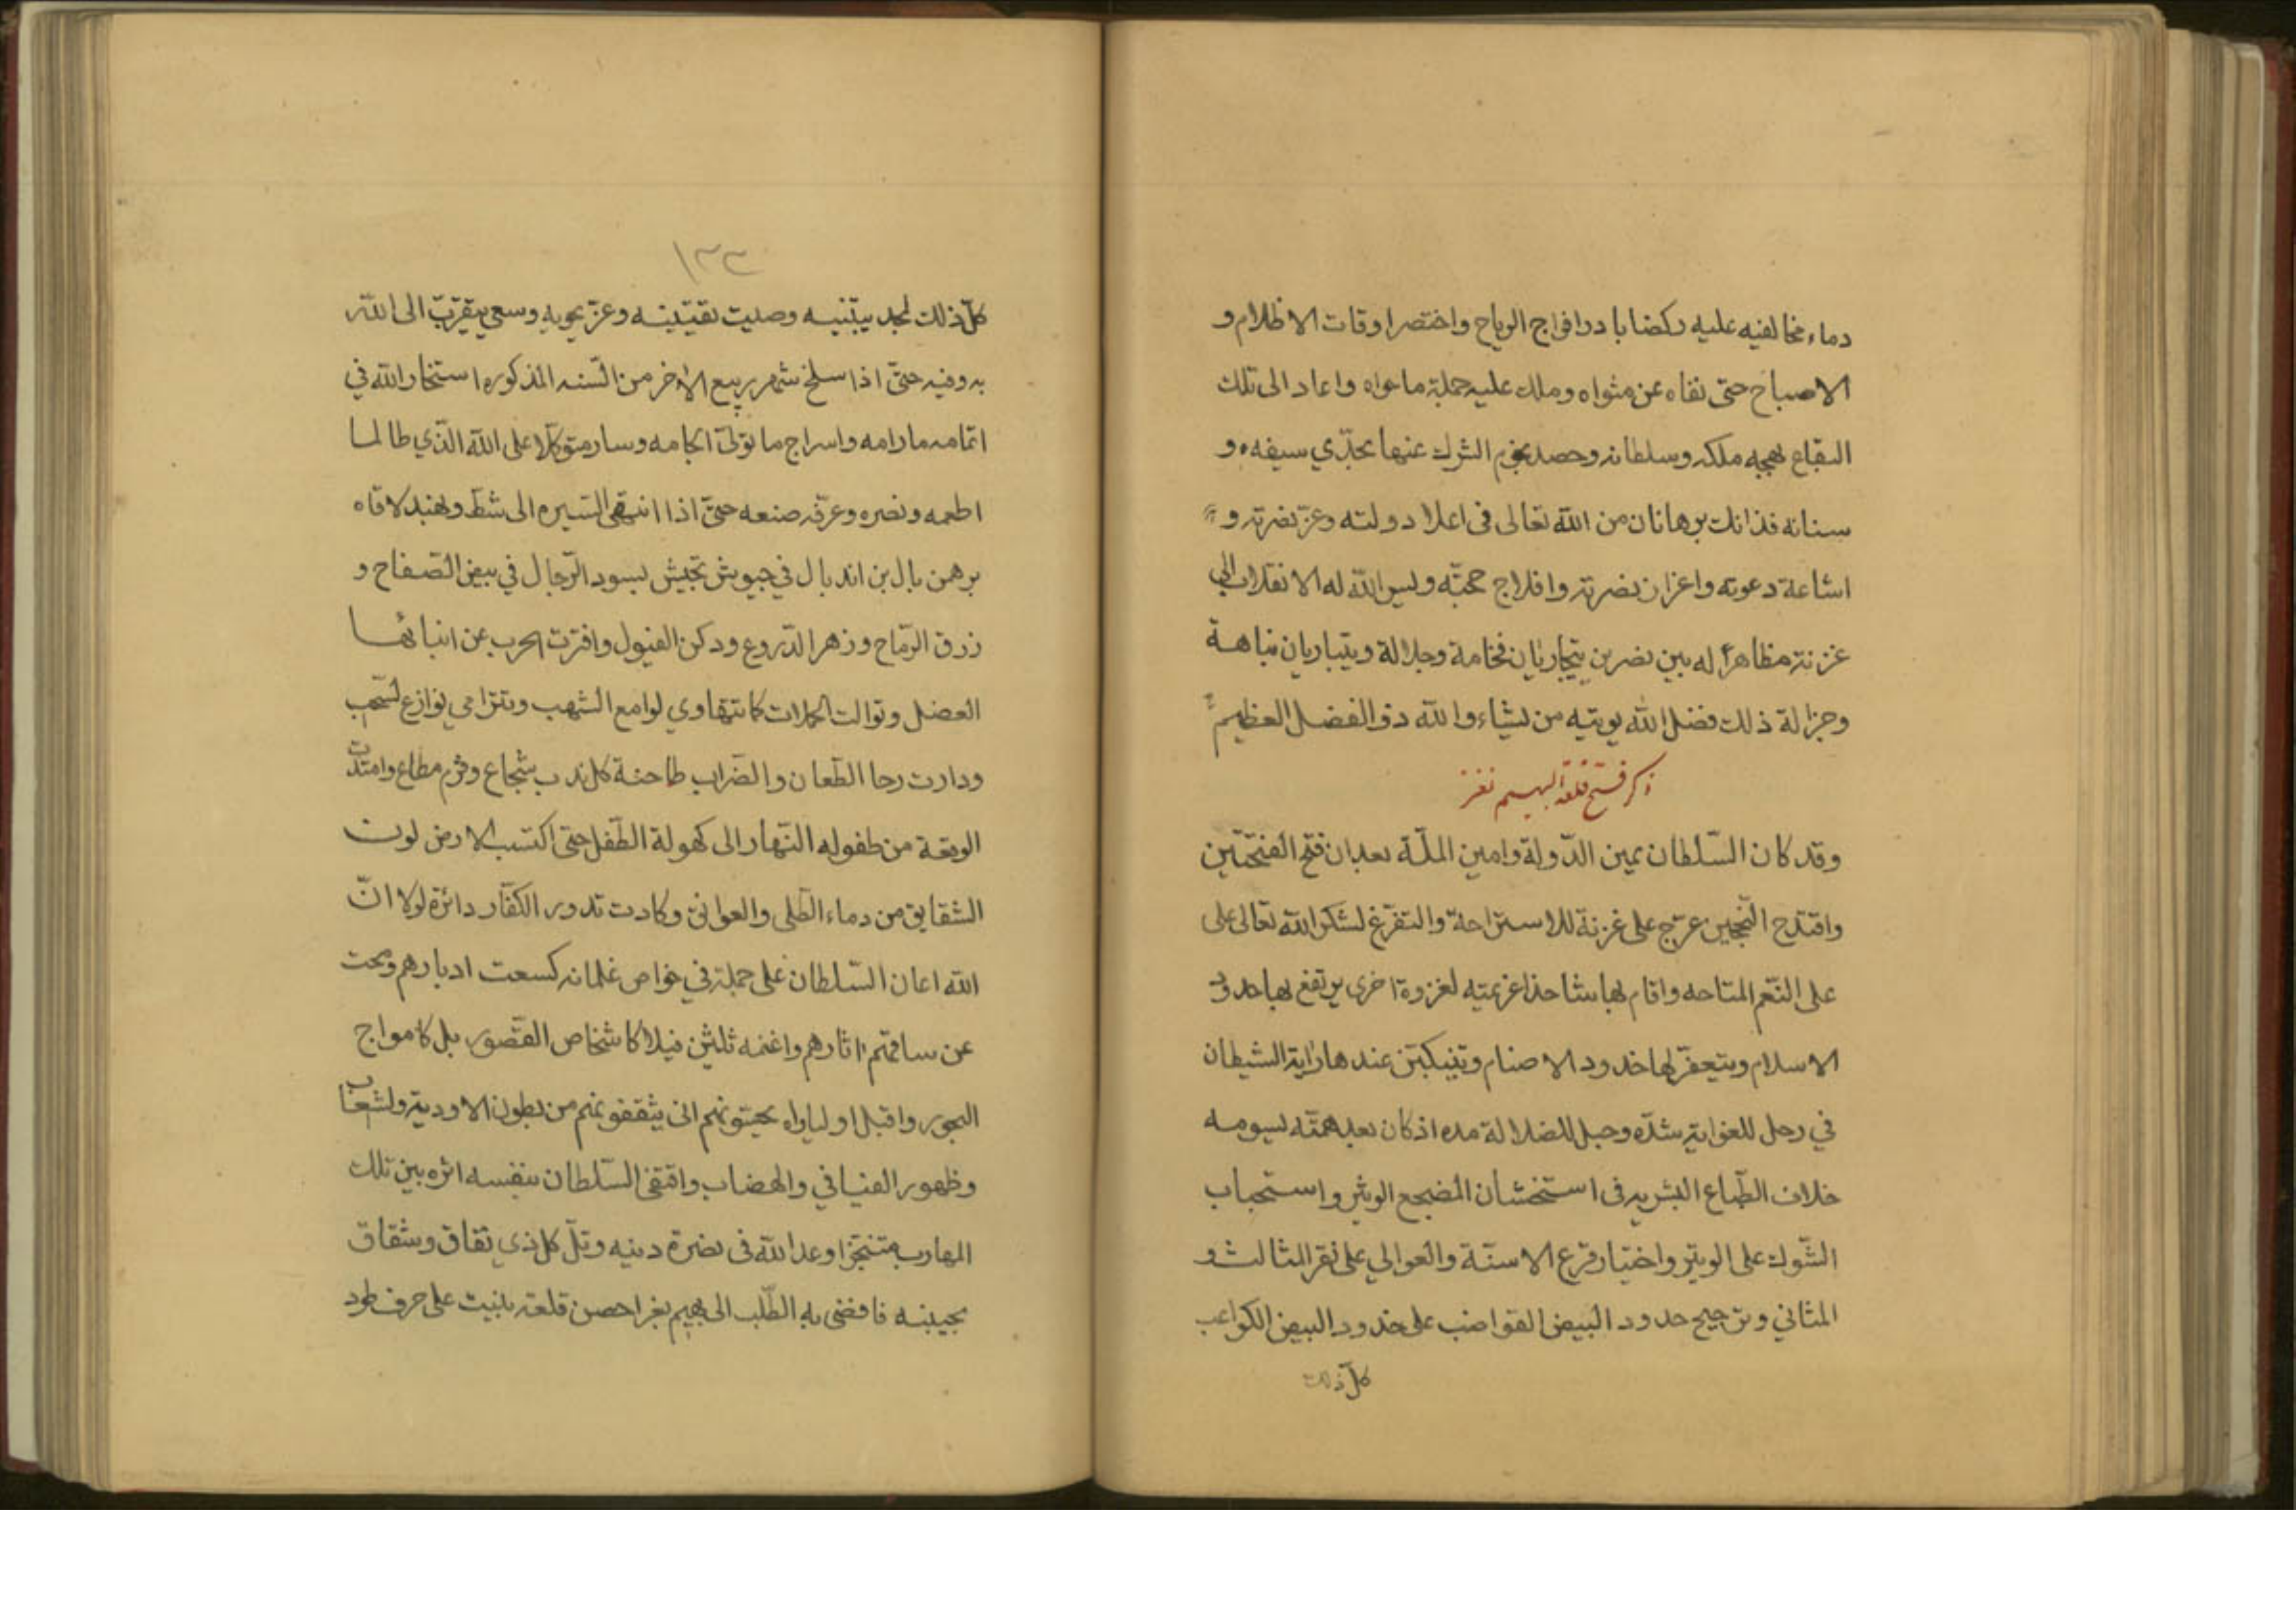 دماء مخالفيه عليه ركضا بادر افواج الرياح واختصر اوقات الاظلام و
الاصباح حتى نفاه عن مثواه وملك عليه جملة ماحواه واعاد الى تلك
البقاع بهجه ملكه وسلطانه وحصد نجوم الشرك عنها بحدّي سيفه و
سنانه فذانك برهانان من الله تعالى فى اعلا دولته وعزّ نصرته و
اشاعة دعوته واعزاز نصرته وافلاج حجّته ويسر الله له الانقلاب الى
غزنة مظاهراً له بين نصرين يتجاريان فخامة وجلالة ويتباريان نباهة
وجزالة ذلك فضل الله يوتيه من يشاء والله ذو الفضل العظيم
ذكر فتح قلعة البهيم نغز
وقد كان السّلطان يمين الدّولة وامين الملّة بعد ان فتح الفتحتين
واقتدح النّجحين عرّج على غزنة للاستراحة والتفرّغ لشكر الله تعالى على
على النّعم المتاحه واقام بها شاحذا عزيمته لغزوة اخرى يرتفع بها حدود
الاسلام ويتعفّر لها خدود الاصنام وتنكبّن عندها راية الشيطان
في رحل للغواية شدّه وحبل للضلالة مده اذ كان بعد همّته يسومه
خلاف الطّباع البشريه فى استخشان المضجع الوثير واستحباب
الشّوك على الوثير واختيار قرع الاسنّة والعوالي على نقر المثالث و
المثاني وترجيح حدود البيض القواضب على خدود البيض الكواعب
كلّ ذلك
١٣٣
كلّ ذلك لمجد يبتنيه وصيت يقتنيه وعزّ يحويه وسعي يتقرّب الى الله
به وفيه حتّى اذا سلخ شهر ربيع الاخر من السّنه المذكوره استخار الله في
اتمامه مارامه واسراج ما تولّى الجامه وسار متوكّلا على الله الذّي طالما
اطعمه ونصره وعرّفه صنعه حتىّ اذا انتهى السّيره الى شطّ ويهند لاقاه
برهمن بال بن اندبال في جيوش تجيش بسود الرّجال في بيض الصّفاح و
زرق الرّماح وزهر الدّروع ودكن الفيول وافترّت الحرب عن انيابها
العضل وتوالت الحملات كما تتهاوي لوامع الشهب وتترامى نوازع السّحب
ودارت رحا الطّعان والضّراب طاحنة كل ندب شجاع وقرم مطاع وامتدّت
الوقعة من طفوله النّهار الى كهولة الطّفل حتى اكتسب الارض لون
الشقايق من دماء الطّلى والعواتق وكادت تدور الكفّار دائرة لولا انّ
الله اعان السّلطان على حملة في خواص غلمانه كسعت ادبارهم ومحت
عن ساقتهم اثارهم واغنمه ثلثين فيلا كاشخاص القصور بل كامواج
البحور واقبل اولياؤه يحسّونهم انى يثقفونهم من بطون الاودية والشّعاب
وظهور الفيافي والهضاب واقتفى السّلطان بنفسه اثره بين تلك
المهارب متنجّزا وعد الله فى نصرة دينه وتلّ كل ذي نفاق وشقاق
بجبينه فافضى به الطّلب الى بهيم نغر احصن قلعة بنيت على حرف طود